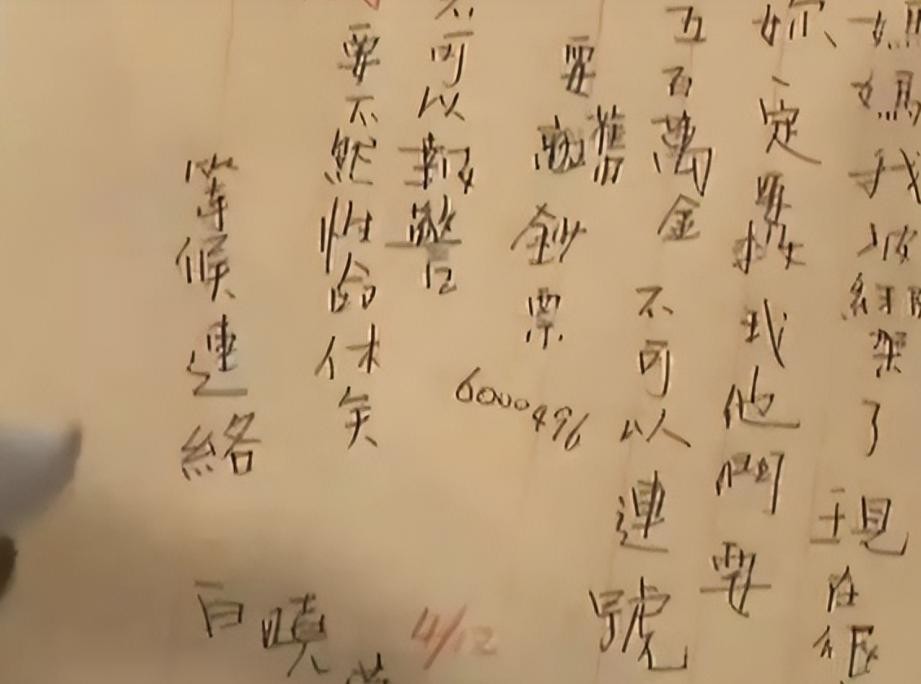 媽媽我被綁架了現在很
妳一定要救我他們要
五百萬金不可以連號
要舊鈔票
6000496
不可以報警
要不然性命休矣
等候連絡
白曉
4/12